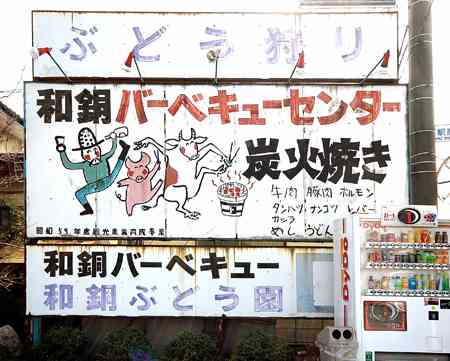 ぶとう狩り
和銅バーベキューセンター
炭火焼き
牛肉 豚肉 ホルモン
タンハツ ナンコツ レバー
カシラ
めし うどん
昭和59年度観光
和銅バーベキュー
和銅ぶとう園